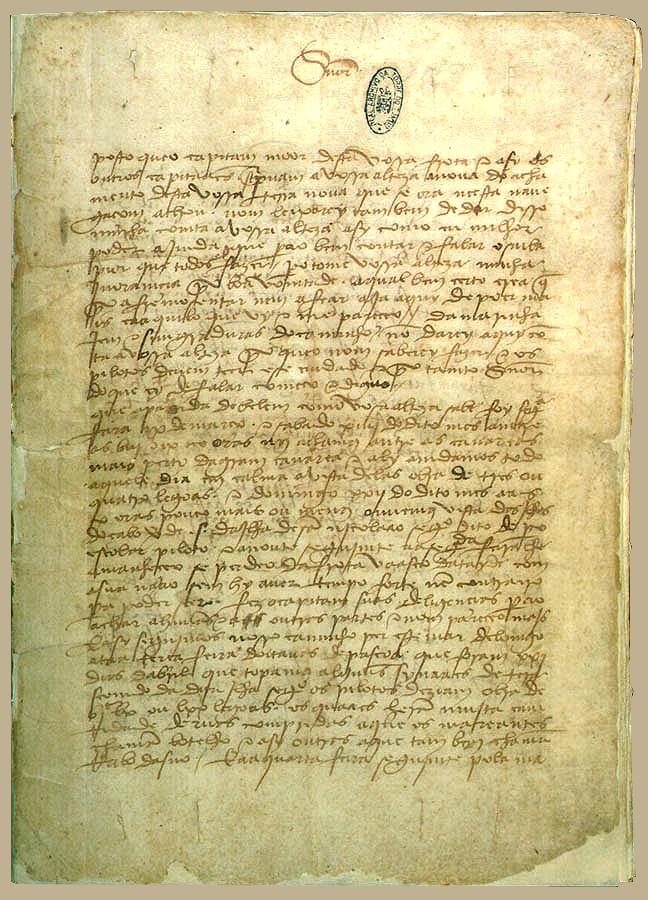 Snõr
posto que o capitam moor desta vossa frota e asy os
outros capitaães screpuam a vossa alteza a noua do acha
mento desta vossa terra noua que se ora neesta naue
gaçam achou. nom leixarey tambem de dar disso
minha comta a vossa alteza asy como eu milhor
poder ajmda que pera o bem contar e falar o saiba
pior que todos fazer. / pero tome vossa alteza minha
jnoramçia por boa vomtade. aqual bem çerto crea q̃
por afremosentar nem afear aja aquy de poer ma
is ca aquilo que vy e me pareçeo. / da marinha
jem e simgraduras do caminho nõ darey aquy cõ
ta a vossa alteza porque o nom saberey fazer e os
pilotos deuem teer ese cuidado e por tanto Snõr
do que ey de falar começo e diguo. /
que a partida de belem como vosa alteza sabe foy segª
feira ix de março. e sabado xiiij do dito mes amtre
as biij e ix oras nos achamos amtre as canareas
mais perto da gram canarea e aly amdamos todo
aquele dia em calma a vista delas obra de tres ou
quatro legoas. e domingo xxij do dito mes aas
x oras pouco mais ou menos ouuemos vista das jlhas
do cabo verde. s. da jlha de sã njcolaao segº dito de pº
escolar piloto. e a noute segujmte aa segda feira lhe
amanheçeo se perdeo da frota vaasco datayde com
a sua naao sem hy auer tempo forte nẽ contrairo
pera poder seer. fez o capitam suas deligençias pera o
achar a huũas e a outras partes e nom pareçeo majs
E asy segujmos nosso caminho per este mar de lomgo
ataa terça feira doitauas de pascoa que foram xxj
dias dabril que topamos alguũs synaaes de tera
seemdo da dita jlha segº os pilotos deziam obra de
bjc lx ou lxx legoas. os quaaes herã mujta cam
tidade deruas compridas a que os mareantes
chamã botelho e asy outras a que tambem chamã
rrabo dasno. / E aa quarta feira segujmte pola ma